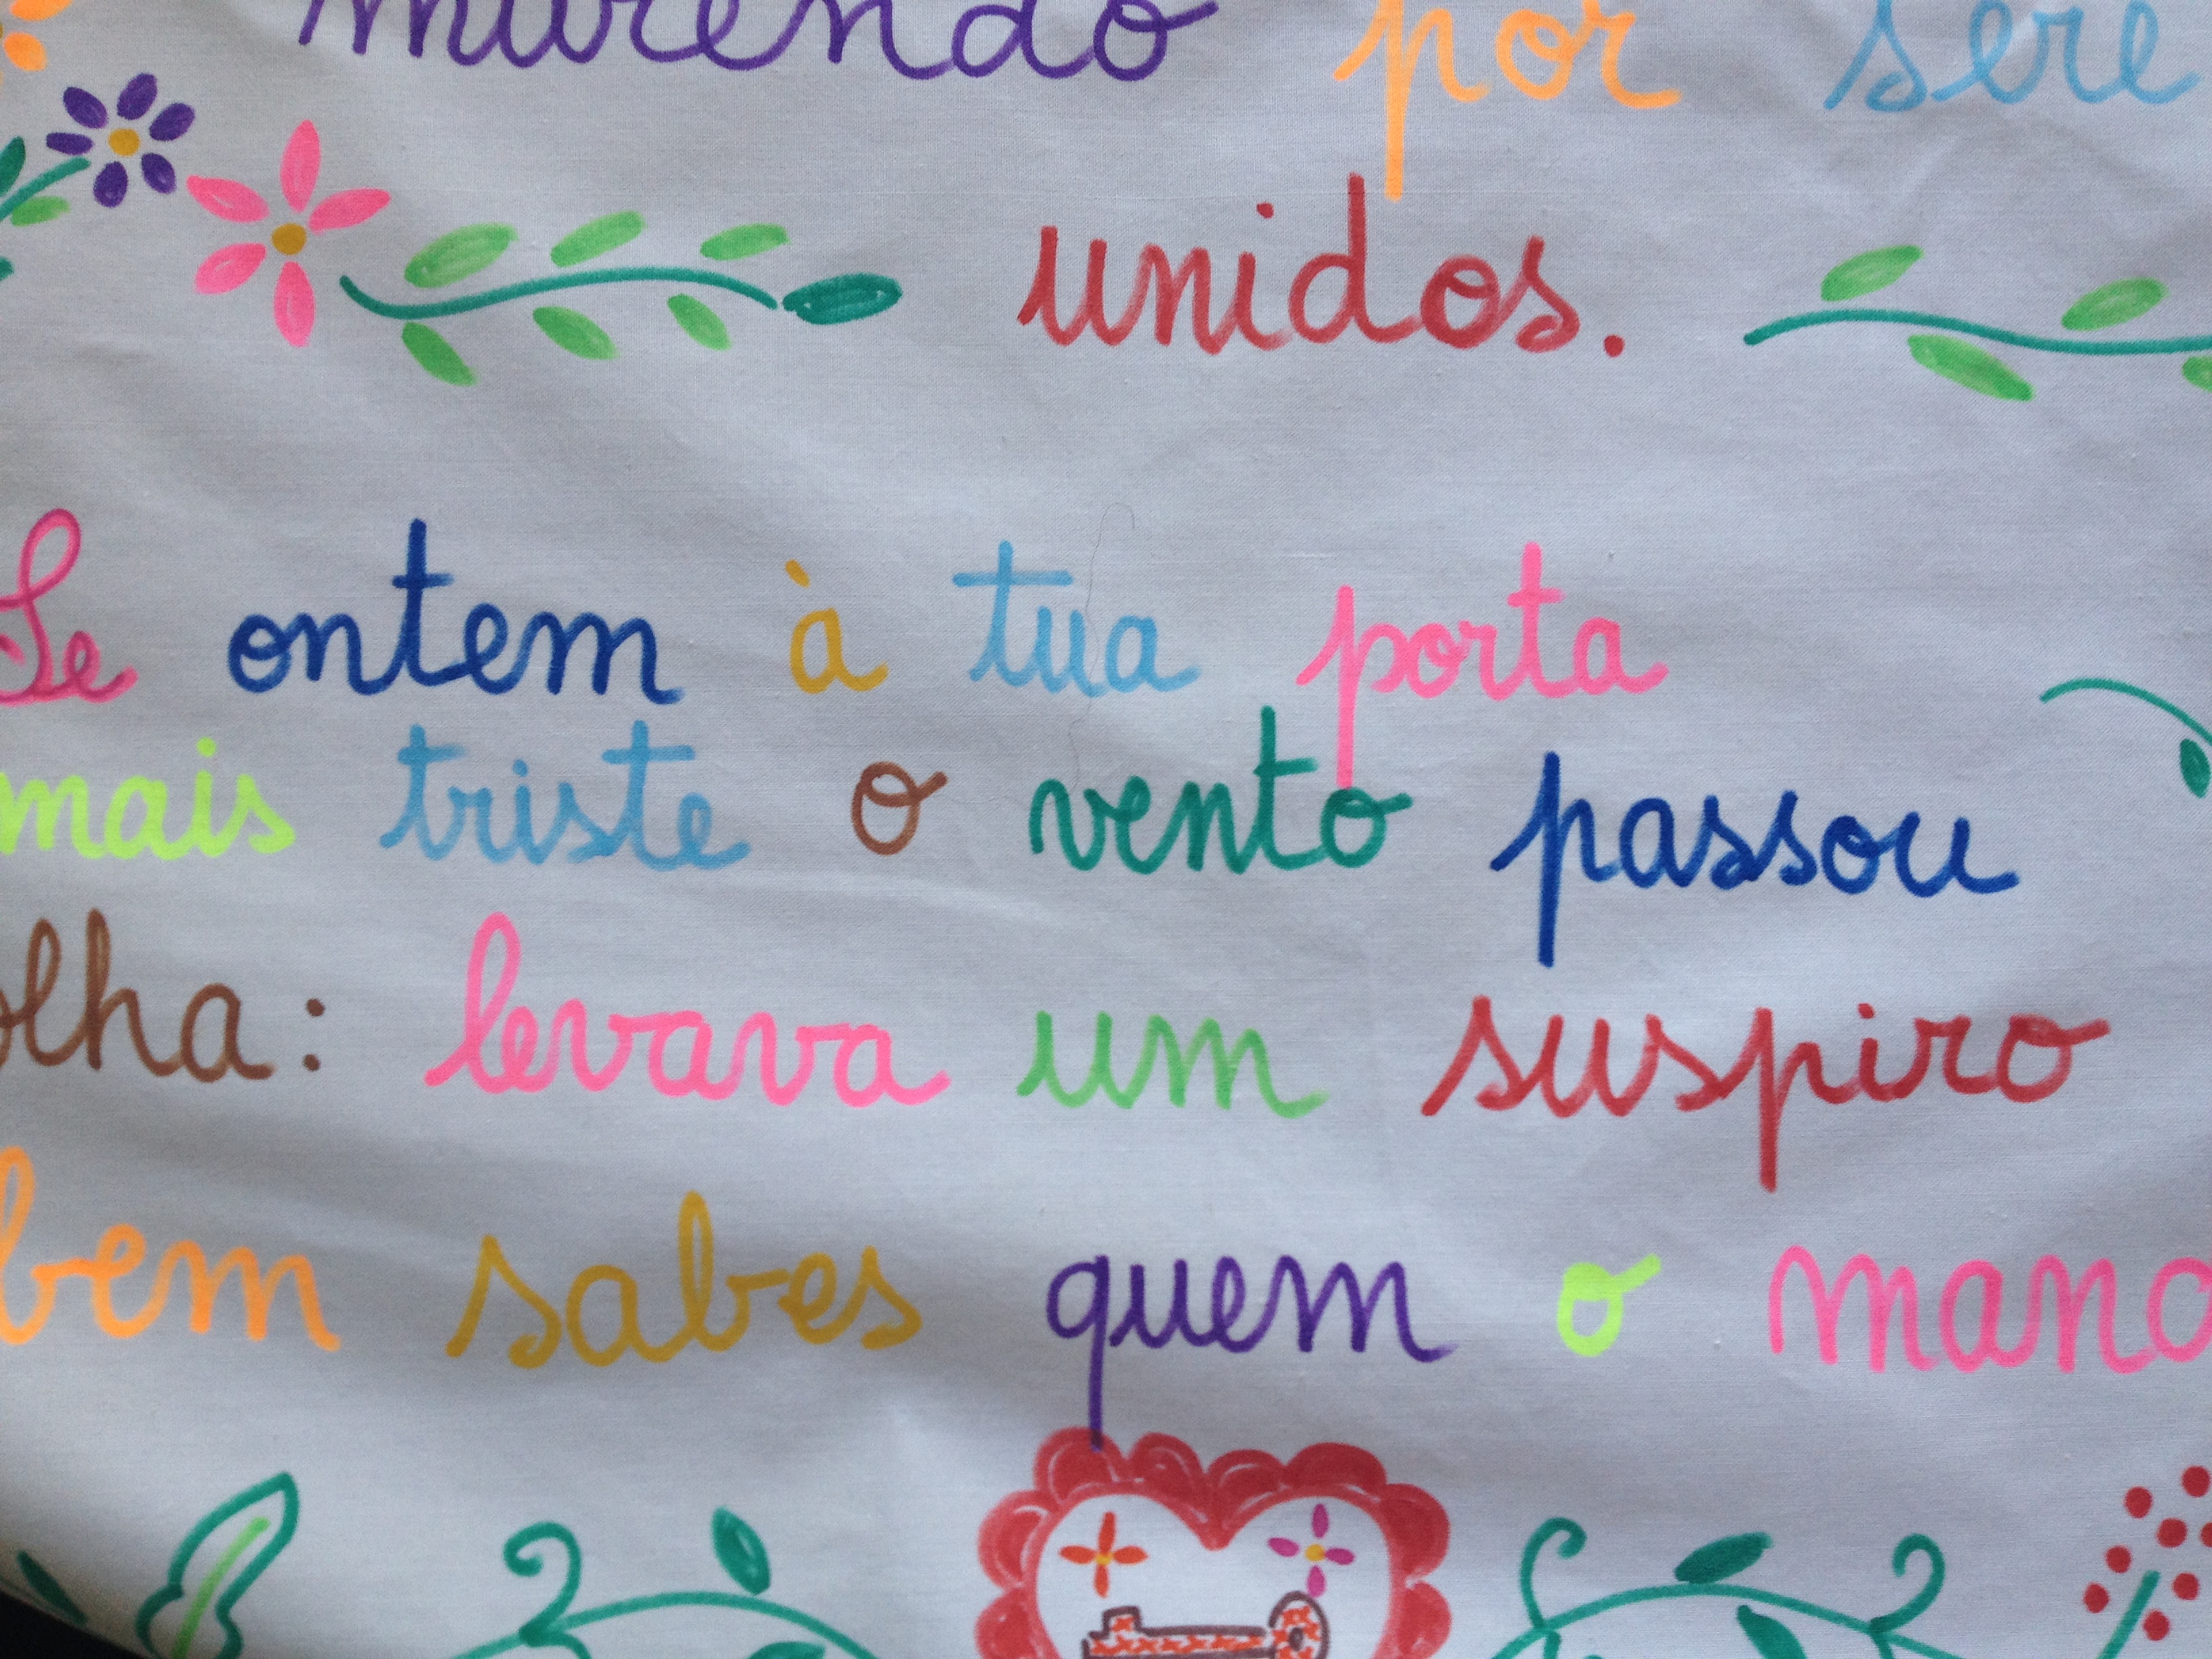 murendo por sere
unidos.
Se ontem à tua porta
mais triste o vento passou
olha: levava um suspiro
bem sabes quem o mano